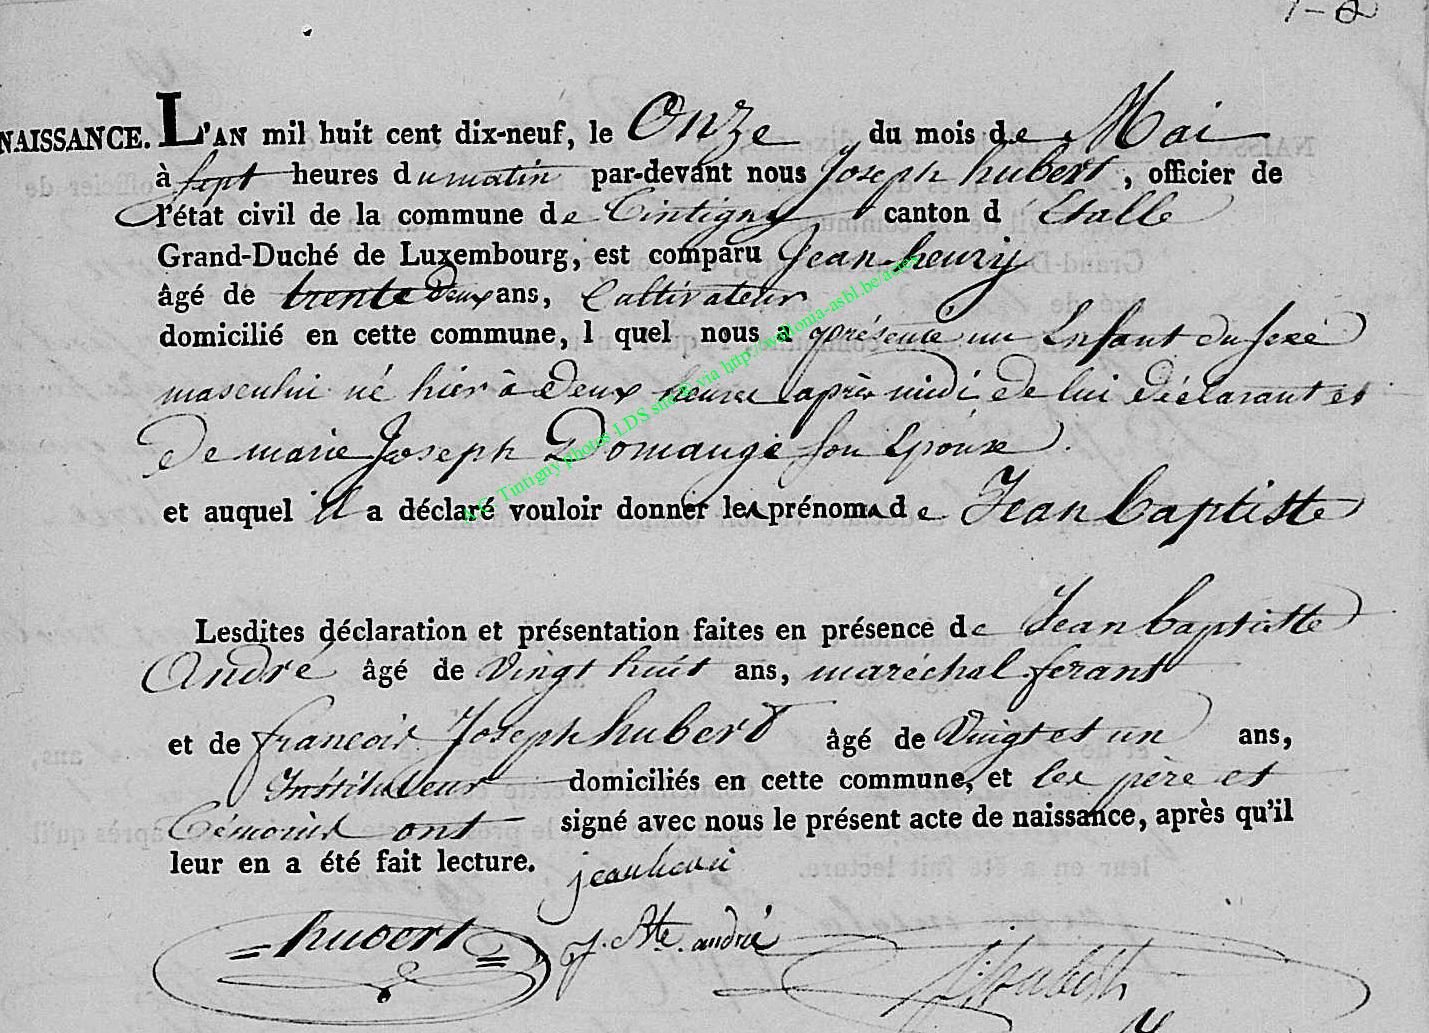 1-2
NAISSANCE. L'AN mil huit cent dix-neuf, le Onze du mois de Mai
à sept heures du matin par-devant nous Joseph hubert, officier de
l'état civil de la commune de Tintigny canton d'Etalle
Grand-Duché de Luxembourg, est comparu Jean henry
âgé de trente deux ans, Cultivateur
domicilié en cette commune, l quel nous a présenté un Enfant du sexe
masculin né hier à deux heures après midi de lui déclarant et
de marie Joseph Domange son Epouse.
et auquel il a déclaré vouloir donner les prénoms de Jean baptiste
Lesdites déclaration et présentation faites en présence de Jean baptiste
André âgé de Vingt huit ans, maréchal ferant
et de francois Joseph hubert âgé de Vingt et un ans,
Instituteur domiciliés en cette commune, et les père et
témoins ont signé avec nous le présent acte de naissance, après qu'il
leur en a été fait lecture. jean henri
hubert J. Bte. andré
A.G. Tintigny photos LDS site & via http://wallonia-asbl.be/actes